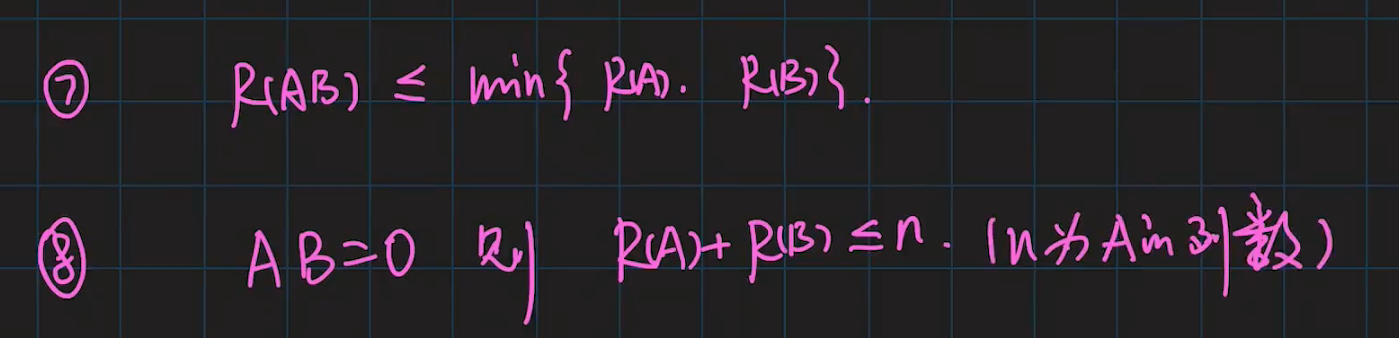 ⑦ R(AB) ≤ min{ R(A). R(B)}.
⑧ AB=0 则 R(A)+R(B)≤n. (n为A的列数)